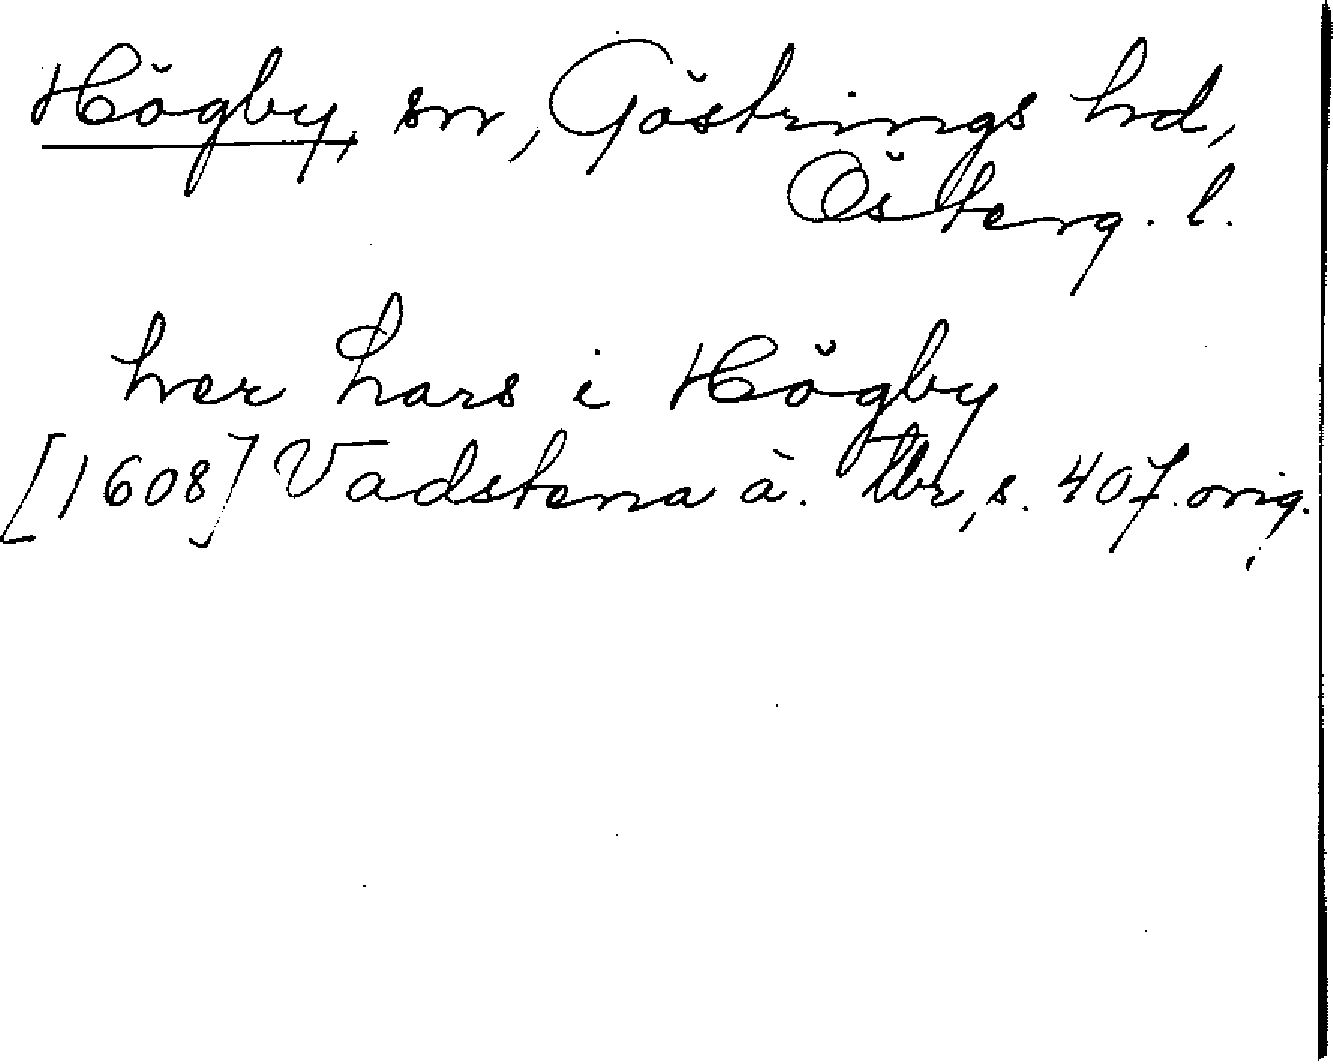 Högby, sn, Göstrings hd,
Österg. l.
her Lars i Högby
[1608] Vadstena ä. tbr, s. 407. orig.